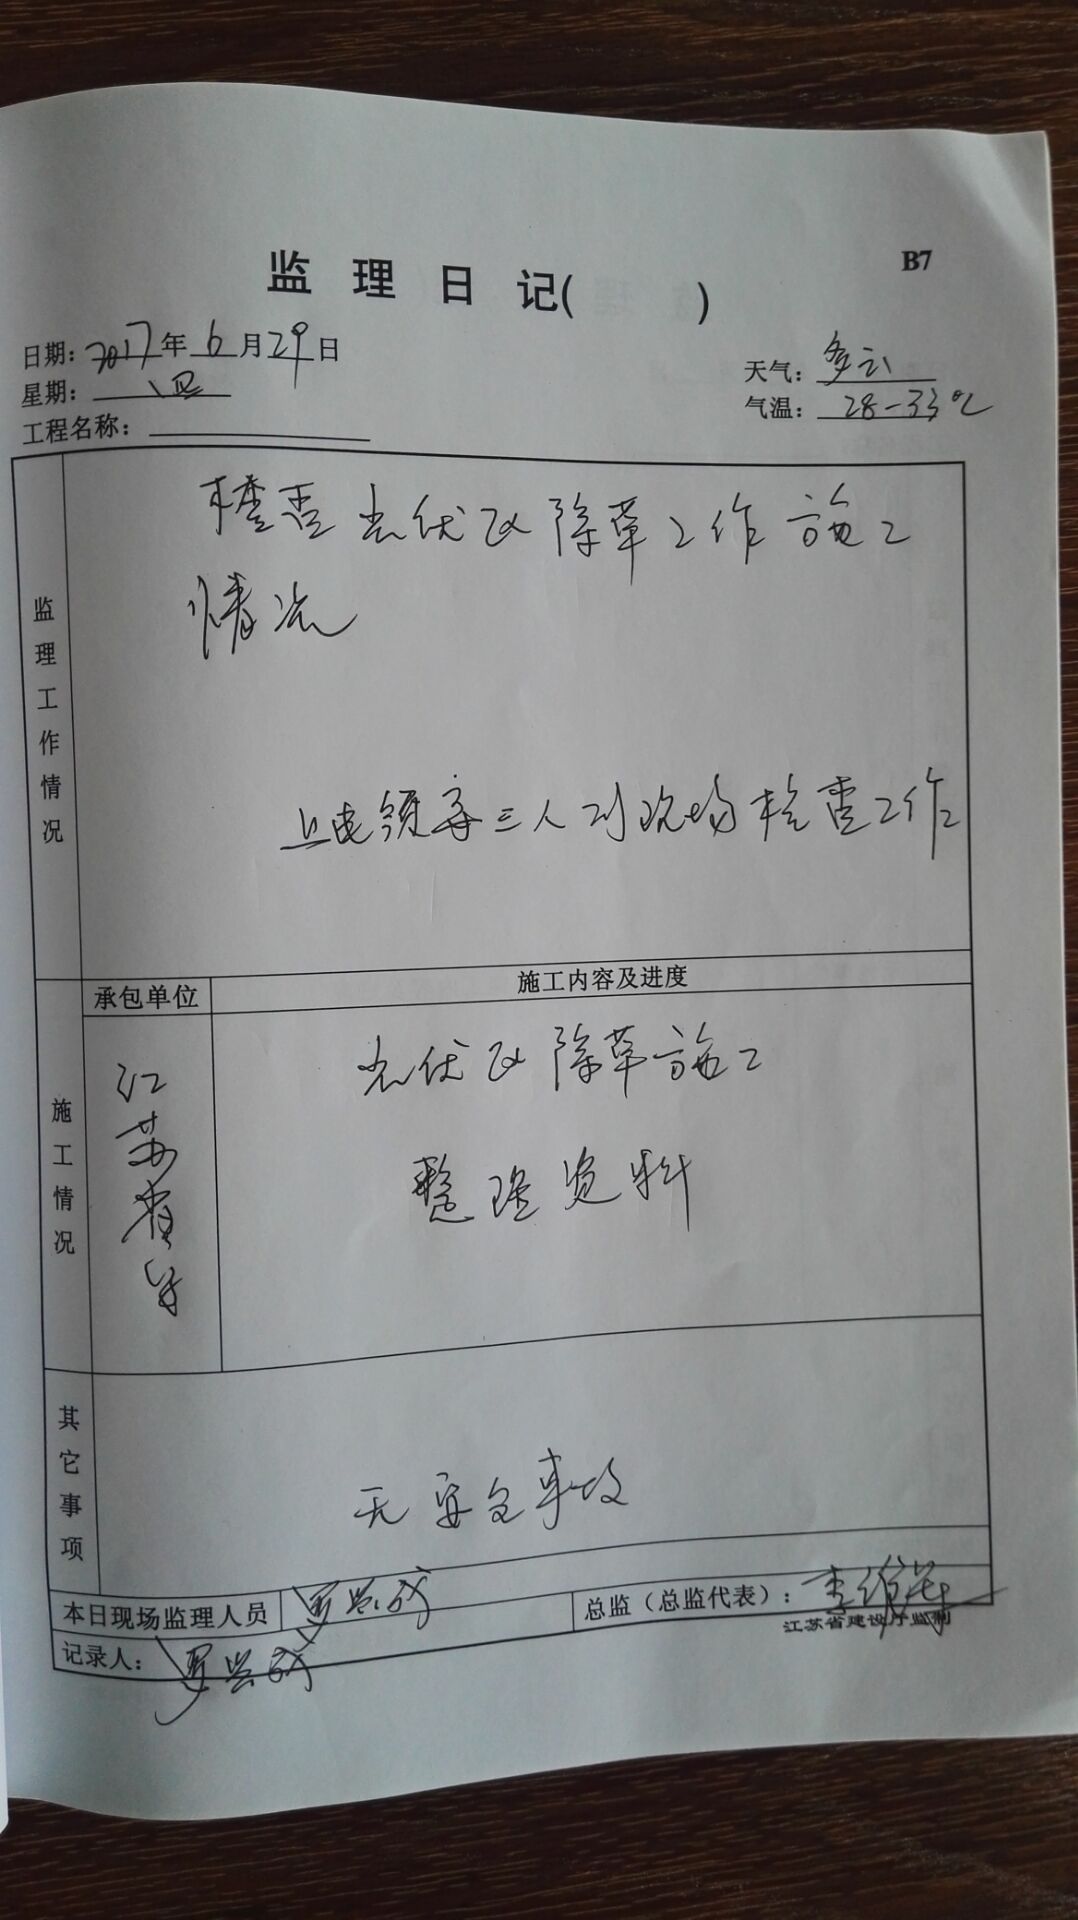 B7
监理日记( )
日期: 2017年6月29日
星期: 四
天气: 多云
气温: 28-33℃
工程名称:
监理工作情况
检查光伏区除草工作施工
情况
上电领导三人到现场检查工作
施工情况
承包单位
施工内容及进度
江苏
光伏区除草施工
整理资料
其它事项
无安全事故
本日现场监理人员 罗兴成
总监（总监代表）: 李维华
江苏省建设厅监制
记录人: 罗兴成